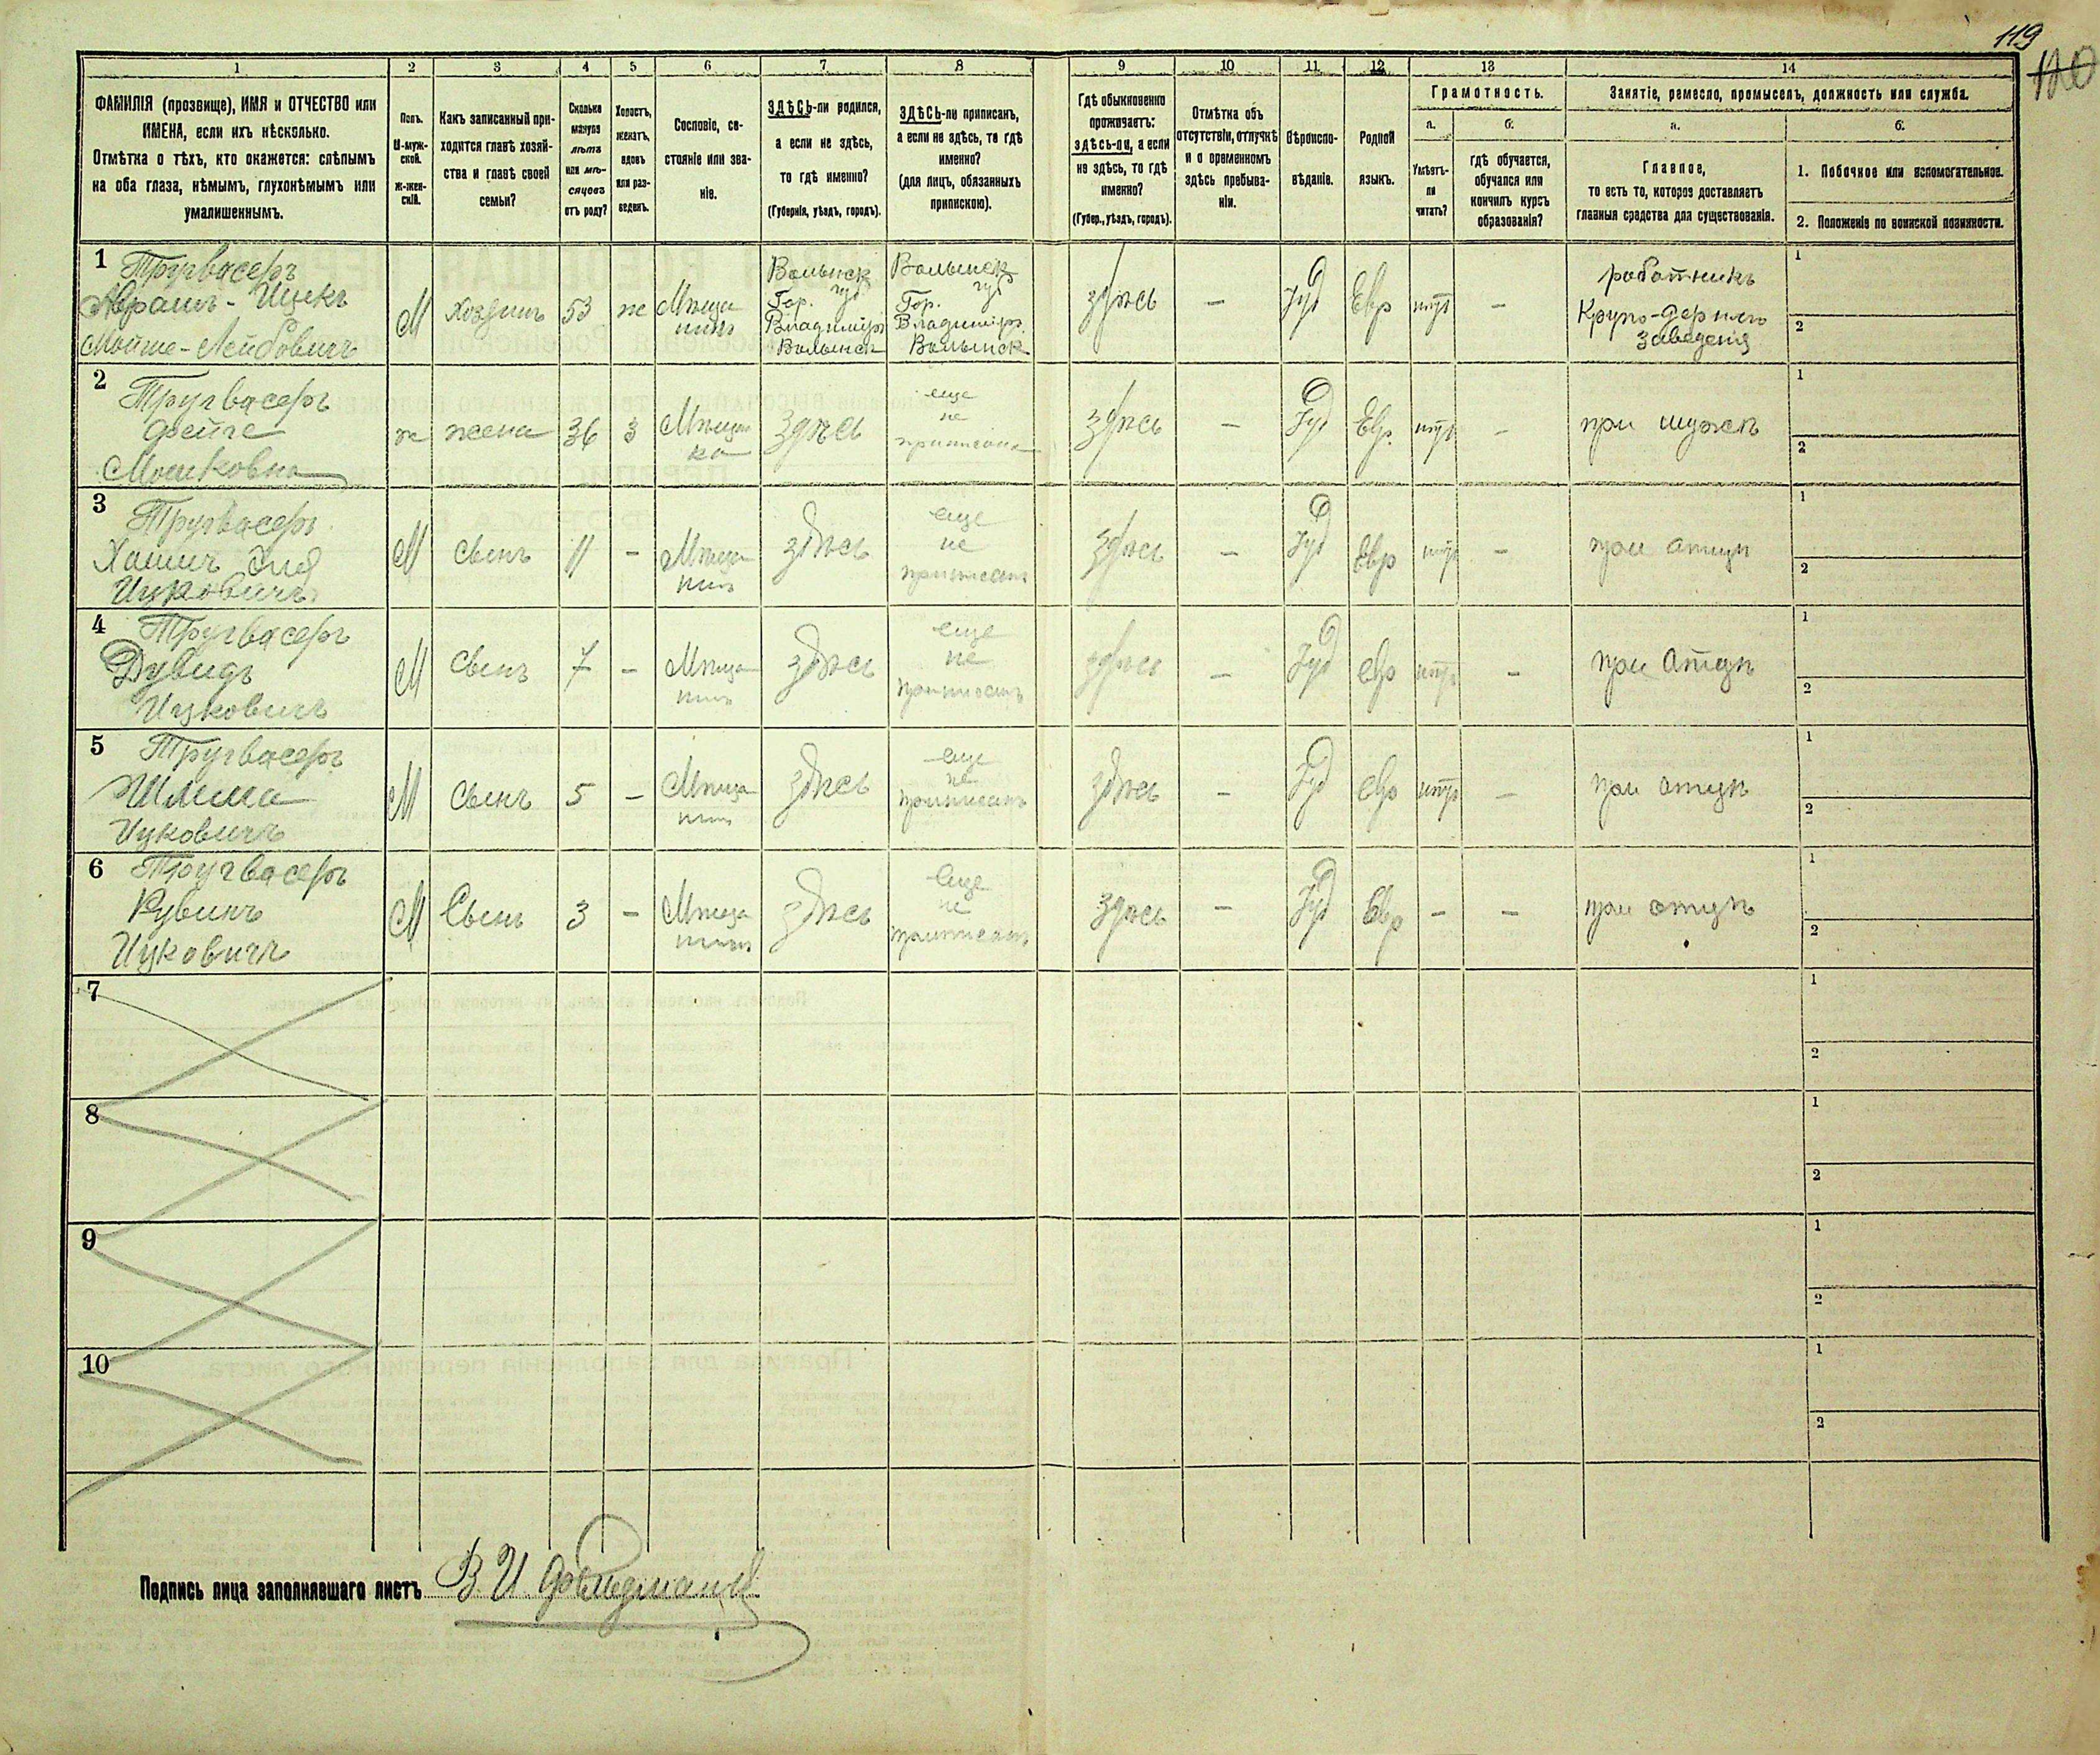 119
120
1 2 3 4 5 6 7 8 9 10 11 12 13 14
ФАМИЛІЯ (прозвище), ИМЯ и ОТЧЕСТВО или
ИМЕНА, если ихъ нѣсколько.
Отмѣтка о тѣхъ, кто окажется: слѣпымъ
на оба глаза, нѣмымъ, глухонѣмымъ или
умалишеннымъ.
Полъ.
М-муж-
ской.
Ж-жен-
скій.
Какъ записанный при-
ходится главѣ хозяй-
ства и главѣ своей
семьи?
Сколько
минуло
лѣтъ
или мѣ-
сяцевъ
отъ роду?
Холостъ,
женатъ,
вдовъ
или раз-
веденъ.
Сословіе, со-
стояніе или зва-
ніе.
ЗДѢСЬ-ли родился,
а если не здѣсь,
то гдѣ именно?
(Губернія, уѣздъ, городъ).
ЗДѢСЬ-ли приписанъ,
а если не здѣсь, то гдѣ
именно?
(для лицъ, обязанныхъ
припискою).
Гдѣ обыкновенно
проживаетъ:
здѣсь-ли, а если
не здѣсь, то гдѣ
именно?
(Губер., уѣздъ, городъ).
Отмѣтка объ
отсутствіи, отлучкѣ
и о временномъ
здѣсь пребыва-
ніи.
Вѣроиспо-
вѣданіе.
Родной
языкъ.
Грамотность.
а.
Умѣетъ-
ли
читать?
б.
гдѣ обучается,
обучался или
кончилъ курсъ
образованія?
Занятіе, ремесло, промыселъ, должность или служба.
а.
Главное,
то есть то, которое доставляетъ
главныя средства для существованія.
б.
1. Побочное или вспомогательное.
2. Положеніе по воинской повинности.
1
Тругвасеръ
Абрамъ-Ицекъ
Мойше-Лейбовичъ
М
Хозяинъ
53
ж
Мѣща
нинъ
Волынск
губ
Гор.
Владимиръ
Волынск
Волынск
губ
Гор.
Владимиръ
Волынск
здѣсь
—
Іуд
Евр
нѣтъ
—
работникъ
Крупо-дерного
заведенія
1
2
2
Тругвасеръ
Фейге
Мошковна
ж
жена
36
З
Мѣщан
ка
Здѣсь
еще
не
приписана
здѣсь
—
Іуд
Евр.
нѣтъ
—
при мужѣ
1
2
3
Тругвасеръ
Хаимъ
Ицковичъ
М
Сынъ
11
—
Мѣща
нинъ
здѣсь
еще
не
приписанъ
здѣсь
—
Іуд
Евр
нѣтъ
—
при отцѣ
1
2
4
Тругвасеръ
Дувидъ
Ицковичъ
М
Сынъ
7
—
Мѣща
нинъ
здѣсь
еще
не
приписанъ
здѣсь
—
Іуд
евр
нѣтъ
—
при отцѣ
1
2
5
Тругвасеръ
Шлиома
Ицковичъ
М
Сынъ
5
—
Мѣща
нинъ
здѣсь
еще
не
приписанъ
здѣсь
—
Іуд
евр
нѣтъ
—
при отцѣ
1
2
6
Тругвасеръ
Рувинъ
Ицковичъ
М
Сынъ
3
—
Мѣща
нинъ
здѣсь
Еще
не
приписанъ
здѣсь
—
Іуд
Евр
—
—
при отцѣ
1
2
7
1
2
8
1
2
9
1
2
10
1
2
Подпись лица заполнявшаго листъ В И Фельдманъ